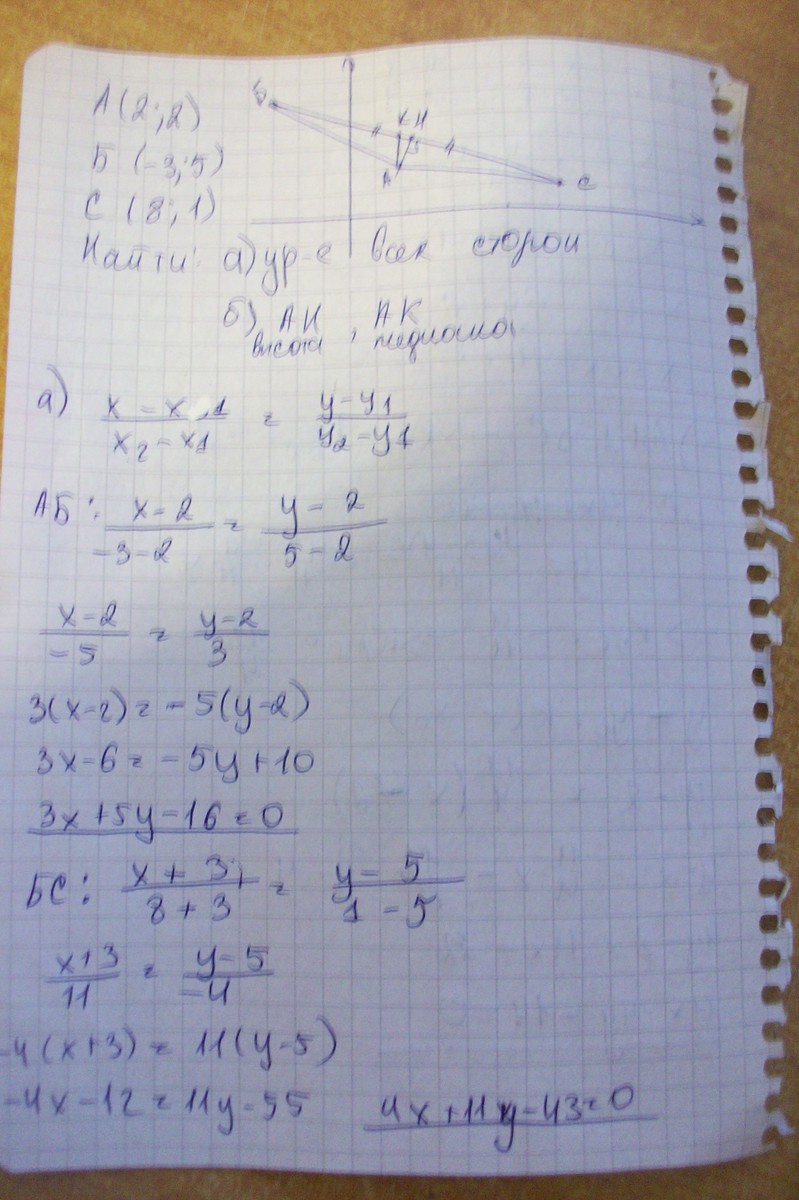 А (2; 2)
Б (-3; 5)
С (8; 1)
Б
К Н
А
С
Найти: а) ур-е всех сторон
Б) АН, АК
высота медиана
а) x - x1 / x2 - x1 = y - y1 / y2 - y1
АБ: x - 2 / -3 - 2 = y - 2 / 5 - 2
x - 2 / -5 = y - 2 / 3
3(x-2) = -5(y-2)
3x-6 = -5y+10
3x+5y-16=0
БС: x + 3 / 8 + 3 = y - 5 / 1 - 5
x+3 / 11 = y-5 / -4
-4(x+3) = 11(y-5)
-4x-12 = 11y-55 4x+11y-43=0